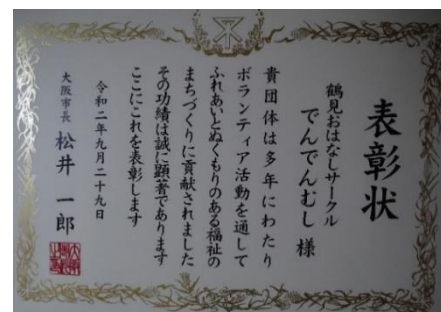 表彰状
鶴見おはなしサークル
でんでんむし 様
貴団体は多年にわたり
ボランティア活動を通して
ふれあいとぬくもりのある福祉の
まちづくりに貢献されました
その功績は誠に顕著であります
ここにこれを表彰します
令和二年九月二十九日
大阪市長 松井 一郎